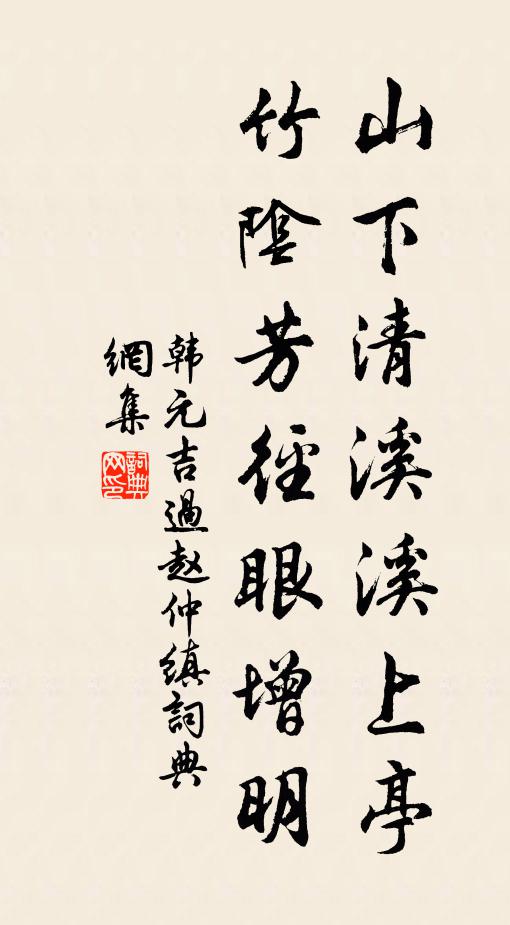 山下清溪溪上亭
竹陰芳徑眼增明
韩元吉過赵仲縝詞典
網集
詞典
网印